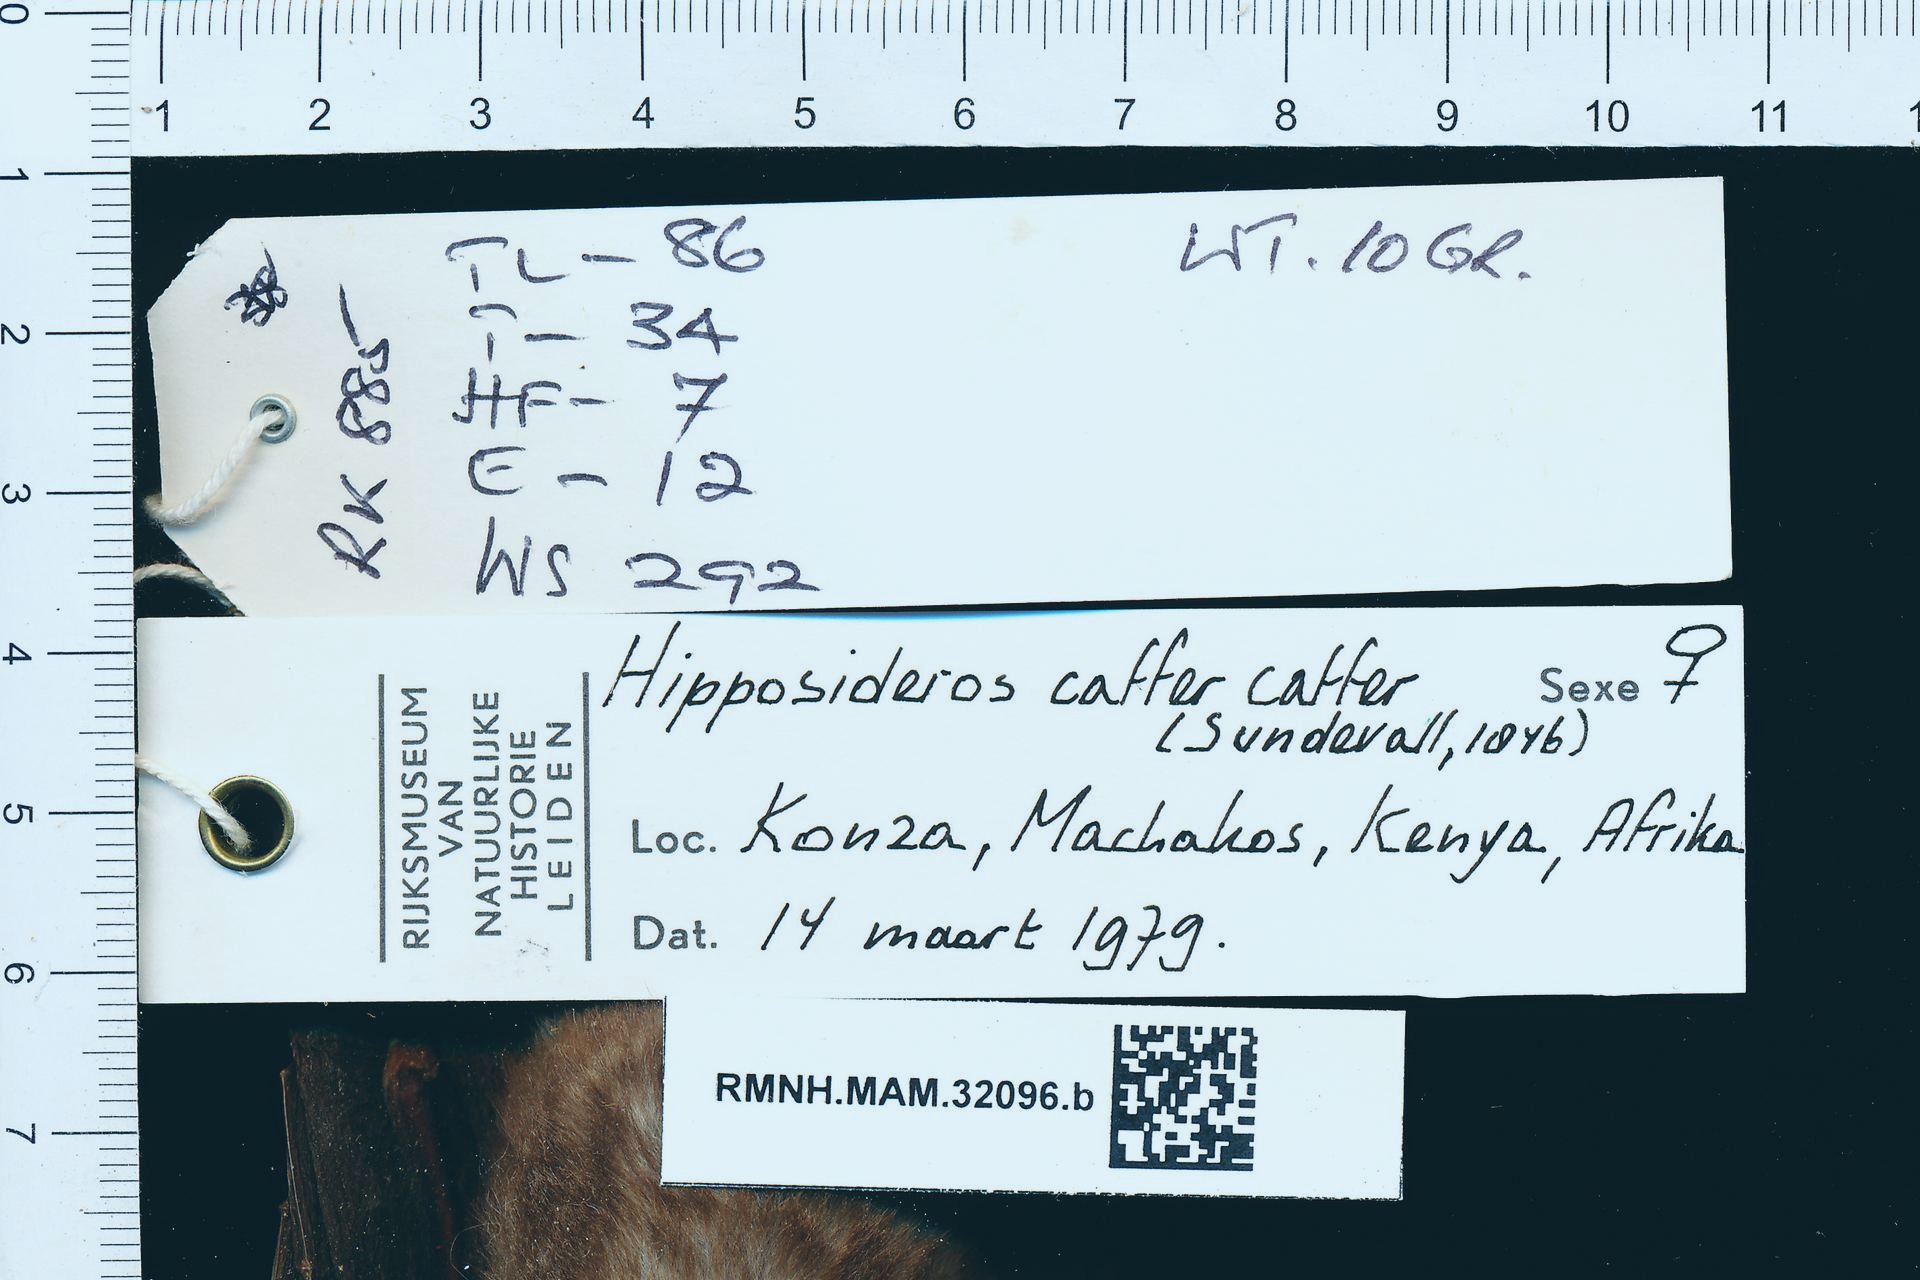 0 1 2 3 4 5 6 7 8 9 10 11
1
2
3
4
5
6
7
RK 885
TL - 86
T - 34
HF - 7
E - 12
WS 292
WT. 10 GR.
RIJKSMUSEUM
VAN
NATUURLIJKE
HISTORIE
LEIDEN
Hipposideros caffer caffer Sexe ♀
(Sundevall, 1846)
Loc. Konza, Machakos, Kenya, Afrika
Dat. 14 maart 1979.
RMNH.MAM.32096.b